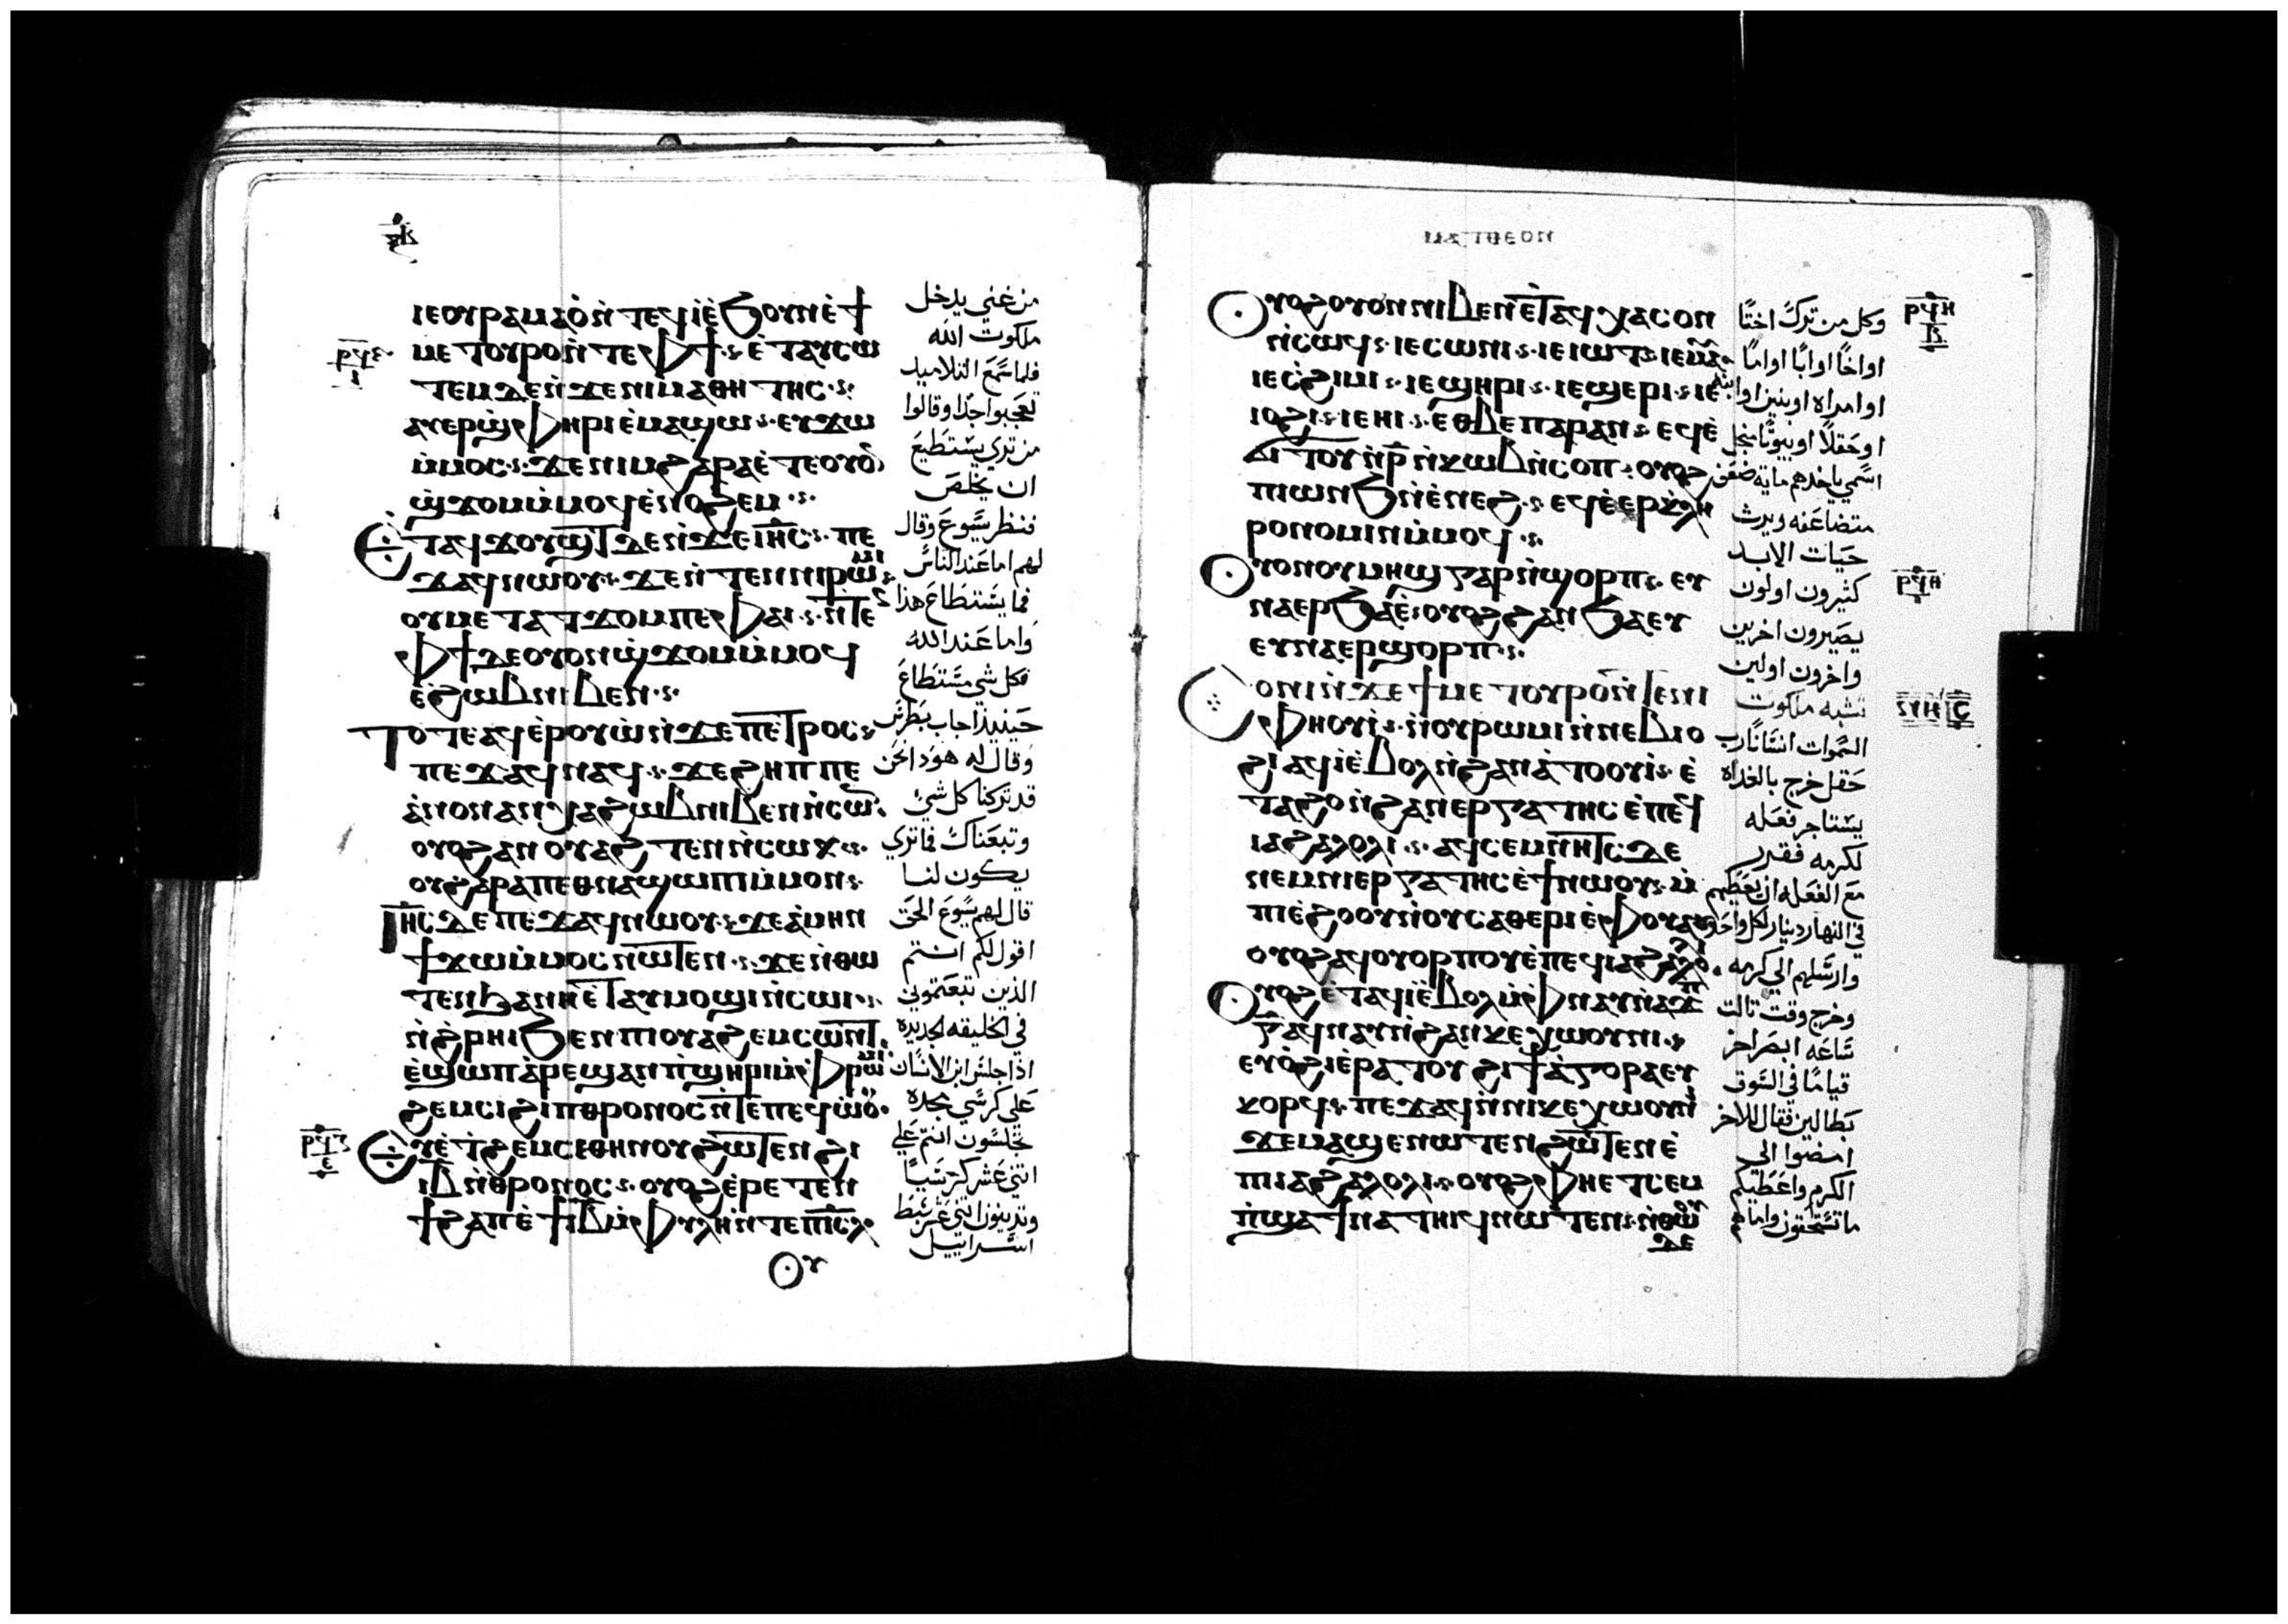 ⲓⲉⲟⲩⲣⲁⲙⲁⲟ̀ ⲛ̀ⲧⲉϥⲓ̀ ⲉ̀ϧⲟⲩⲛ ⲉ̀ϯ
ⲙⲉⲧⲟⲩⲣⲟ ⲛ̀ⲧⲉ ⲫϯ ⲉ̀ⲧⲁⲩⲥⲱ
ⲧⲉⲙ ⲇⲉ ⲛ̀ϫⲉ ⲛⲓⲙⲁⲑⲏⲧⲏⲥ
ⲁⲩⲉⲣϣ̀ⲫⲏⲣⲓ ⲉ̀ⲙⲁϣⲱ ⲉⲩϫⲱ
ⲙ̀ⲙⲟⲥ ϫⲉ ⲛⲓⲙ ϩⲁⲣⲁ ⲉ̀ⲧⲉⲟⲩⲟ̅
ϣ̀ϫⲟⲙ ⲙ̀ⲙⲟϥ ⲉ̀ⲛⲟϩⲉⲙ
ⲉ̀ⲧⲁϥϫⲟⲩϣⲧ ⲇⲉ ⲛ̀ϫⲉ ⲓⲏ̅ⲥ̅ ⲡⲉ
ϫⲁϥ ⲛⲱⲟⲩ ϫⲉ ⲛ̀ⲧⲉⲛ ⲛⲓⲣⲱⲙⲓ
ⲟⲩⲙⲉⲧⲁⲧϫⲟⲙ ⲡⲉ ⲫⲁⲓ ⲛ̀ⲧⲉ
ⲫϯ ⲇⲉ ⲟⲩⲟⲛ ϣ̀ϫⲟⲙ ⲙ̀ⲙⲟϥ
ⲉ̀ϩⲱⲃ ⲛⲓⲃⲉⲛ
ⲧⲟⲧⲉ ⲁϥⲉ̀ⲣⲟⲩⲱ̀ ⲛ̀ϫⲉ ⲡⲉⲧⲣⲟⲥ
ⲡⲉϫⲁϥ ⲛⲁϥ ϫⲉ ϩⲏⲡⲡⲉ
ⲁ̀ⲛⲟⲛ ⲁⲛⲭⲁ ϩⲱⲃ ⲛⲓⲃⲉⲛ ⲛ̀ⲥⲱ
ⲟⲩⲟϩ ⲁⲛⲟⲩⲁϩⲧⲉⲛ ⲛ̀ⲥⲱⲕ
ⲟⲩ ϩⲁⲣⲁ ⲡⲉⲑⲛⲁϣⲱⲡⲓ ⲙ̀ⲙⲟⲛ
ⲓⲏ̅ⲥ̅ ⲇⲉ ⲡⲉϫⲁϥ ⲛⲱⲟⲩ ϫⲉ ⲁ̀ⲙⲏⲛ
ϯϫⲱ ⲙ̀ⲙⲟⲥ ⲛⲱⲧⲉⲛ ϫⲉ ⲛ̀ⲑⲱ
ⲧⲉⲛ ϧⲁ ⲛⲏⲉ̀ⲧⲁⲩⲙⲟϣⲓ ⲛ̀ⲥⲱⲓ
ⲛ̀ϩ̀ⲣⲏⲓ ϧⲉⲛ ⲡⲓⲟⲩⲁϩⲉⲙⲥⲱⲛⲧ
ⲉ̀ϣⲱⲡ ⲁⲣⲉϣⲁⲛ ⲡ̀ϣⲏⲣⲓ ⲙ̀ⲫⲣⲱⲙⲓ
ϩⲉⲙⲥⲓ ϩⲓ ⲡⲑⲣⲟⲛⲟⲥ ⲛ̀ⲧⲉ ⲡⲉϥⲱ̀ⲟⲩ
ⲉⲣⲉⲧⲉⲛϩⲉⲙⲥⲓ ⲑⲏⲛⲟⲩ ϩⲱⲧⲉⲛ ϩⲓ
ⲓⲃ̅ ⲛ̀ⲑⲣⲟⲛⲟⲥ ⲟⲩⲟϩ ⲉ̀ⲣⲉⲧⲉⲛ
ϯϩⲁⲡ ⲉ̀ϯⲓⲃ̅ ⲙ̀ⲫⲩⲗⲏ ⲛ̀ⲧⲉ ⲡⲓⲥ̅ⲗ̅
ⲟⲩ
من غني يدخل
ملكوت الله
فلما سمع التلاميد
تعجبوا جدا وقالوا
من تري يستطيع
ان يخلص
فنظر يسوع وقال
لهم اما عند الناس
فما يستطاع هذا
واما عند الله
فكل شي مستطاع
حينيذ اجاب بطرس
وقال له هوذا نحن
قد تركنا كل شي
وتبعناك فما تري
يكون لنا
قال لهم يسوع الحق
اقول لكم انتم
الذين تبعتموني
في الخليقه الجديده
اذا جلس ابن الانسان
علي كرسي مجده
تجلسون انتم علي
اتني عشر كرسيا
وتدينون اتني عشر سبط
اسراييل
ⲙⲁⲧⲑⲉⲟⲛ
ⲟⲩⲟϩ ⲟⲩⲟⲛ ⲛⲓⲃⲉⲛ ⲉ̀ⲧⲁϥⲭⲁ ⲥⲟⲛ
ⲛ̀ⲥⲱϥ ⲓⲉ ⲥⲱⲛⲓ ⲓⲉ ⲓⲱⲧ ⲓⲉ ⲙⲁⲩ
ⲓⲉ ⲥ̀ϩⲓⲙⲓ ⲓⲉ ϣⲏⲣⲓ ⲓⲉ ϣⲉⲣⲓ ⲓⲉ
ⲓⲟϩⲓ ⲓⲉ ⲏⲓ ⲉⲑⲃⲉ ⲡⲁⲣⲁⲛ ⲉϥⲉ̀
ϭⲓⲧⲟⲩ ⲛ̀ⲣ̅ ⲛ̀ⲕⲱⲃ ⲛ̀ⲥⲟⲡ ⲟⲩⲟϩ
ⲡⲓⲱⲛϧ ⲛ̀ⲉ̀ⲛⲉϩ ⲉϥⲉ̀ⲉⲣⲕ̀ⲗⲏ
ⲣⲟⲛⲟⲙⲓⲛ ⲙ̀ⲙⲟϥ
ⲟⲩⲟⲛ ⲟⲩⲙⲏϣ ⲅⲁⲣ ⲛ̀ϣⲟⲣⲡ ⲉⲩ
ⲛⲁⲉⲣϧⲁⲉ̀ ⲟⲩⲟϩ ϩⲁⲛϧⲁⲉⲩ
ⲉⲩⲛⲁⲉⲣϣⲟⲣⲡ
ⲥⲟⲛⲓ ⲛ̀ϫⲉ ϯⲙⲉⲧⲟⲩⲣⲟ ⲛ̀ⲧⲉ ⲛⲓ
ⲫⲏⲟⲩⲓ̀ ⲛ̀ⲟⲩⲣⲱⲙⲓ ⲛ̀ⲛⲉⲃⲓⲟ
ϩⲓ ⲁϥⲓ̀ ⲉ̀ⲃⲟⲗ ⲛ̀ϩⲁⲛⲁ̀ⲧⲟⲟⲩⲓ̀ ⲉ̀
ⲧⲁϩⲟ ⲛ̀ϩⲁⲛⲉⲣⲅⲁⲧⲏⲥ ⲉ̀ⲡⲉϥ
ⲓⲁϩⲁⲗⲟⲗⲓ ⲁϥⲥⲉⲙⲛⲏⲧⲥ ⲇⲉ
ⲛⲉⲙ ⲛⲓⲉⲣⲅⲁⲧⲏⲥ ⲉ̀ϯ ⲛⲱⲟⲩ ⲙ̀
ⲡⲓⲉ̀ϩⲟⲟⲩ ⲛ̀ⲟⲩⲥⲁⲑⲉⲣⲓ ⲉ̀ⲫⲟⲩⲁⲓ
ⲟⲩⲟϩ ⲁϥⲟⲩⲟⲣⲡⲟⲩ ⲉ̀ⲡⲉϥⲓⲁϩⲁⲗⲟⲗⲓ
ⲟⲩⲟϩ ⲉ̀ⲧⲁϥⲓ̀ ⲉ̀ⲃⲟⲗ ⲙ̀ⲫⲛⲁⲩ ⲛ̀ⲁϫⲡ
ⲅ̅ ⲁϥⲛⲁⲩ ⲛ̀ϩⲁⲛⲕⲉⲭⲱⲟⲩⲛⲓ
ⲉⲩⲟ̀ϩⲓ ⲉ̀ⲣⲁⲧⲟⲩ ϩⲓ ϯⲁ̀ⲅⲟⲣⲁ ⲉⲩ
ⲕⲟⲣϥ ⲡⲉϫⲁϥ ⲛ̀ⲛⲓⲕⲉⲭⲱⲟⲩⲛⲓ
ϫⲉ ⲙⲁϣⲉⲛⲱⲧⲉⲛ ϩⲱⲧⲉⲛ ⲉ̀
ⲡⲓⲁϩⲁⲗⲟⲗⲓ ⲟⲩⲟϩ ⲫⲏⲉⲧⲥⲉⲙ
ⲡ̀ϣⲁ ϯⲛⲁⲧⲏⲓϥ ⲛⲱⲧⲉⲛ ⲛ̀ⲑⲱⲟⲩ
ⲇⲉ
وكل من ترك اختا
او اخا او ابا او اما
او امراه او بنين او ابنه
او حقلا او بيوتا من اجل
اسمي ياخدهم مايه ضعف
متضاعفه ويرث
حيات الابد
كثيرون اولون
يصيرون اخرين
واخرون اولين
تشبه ملكوت
السموات انسانا رب
حقل خرج بالغداه
يستاجر فعله
لكرمه فقرر
مع الفعله ان يعطيهم
في النهار دينار لكل واحد
وارسلهم الي كرمه
وخرج وقت تالت
ساعه ابصر اخر
قياما في السوق
بطالين فقال للاخر
امضوا الي
الكرم واعطيكم
ما تستحقون واما هم